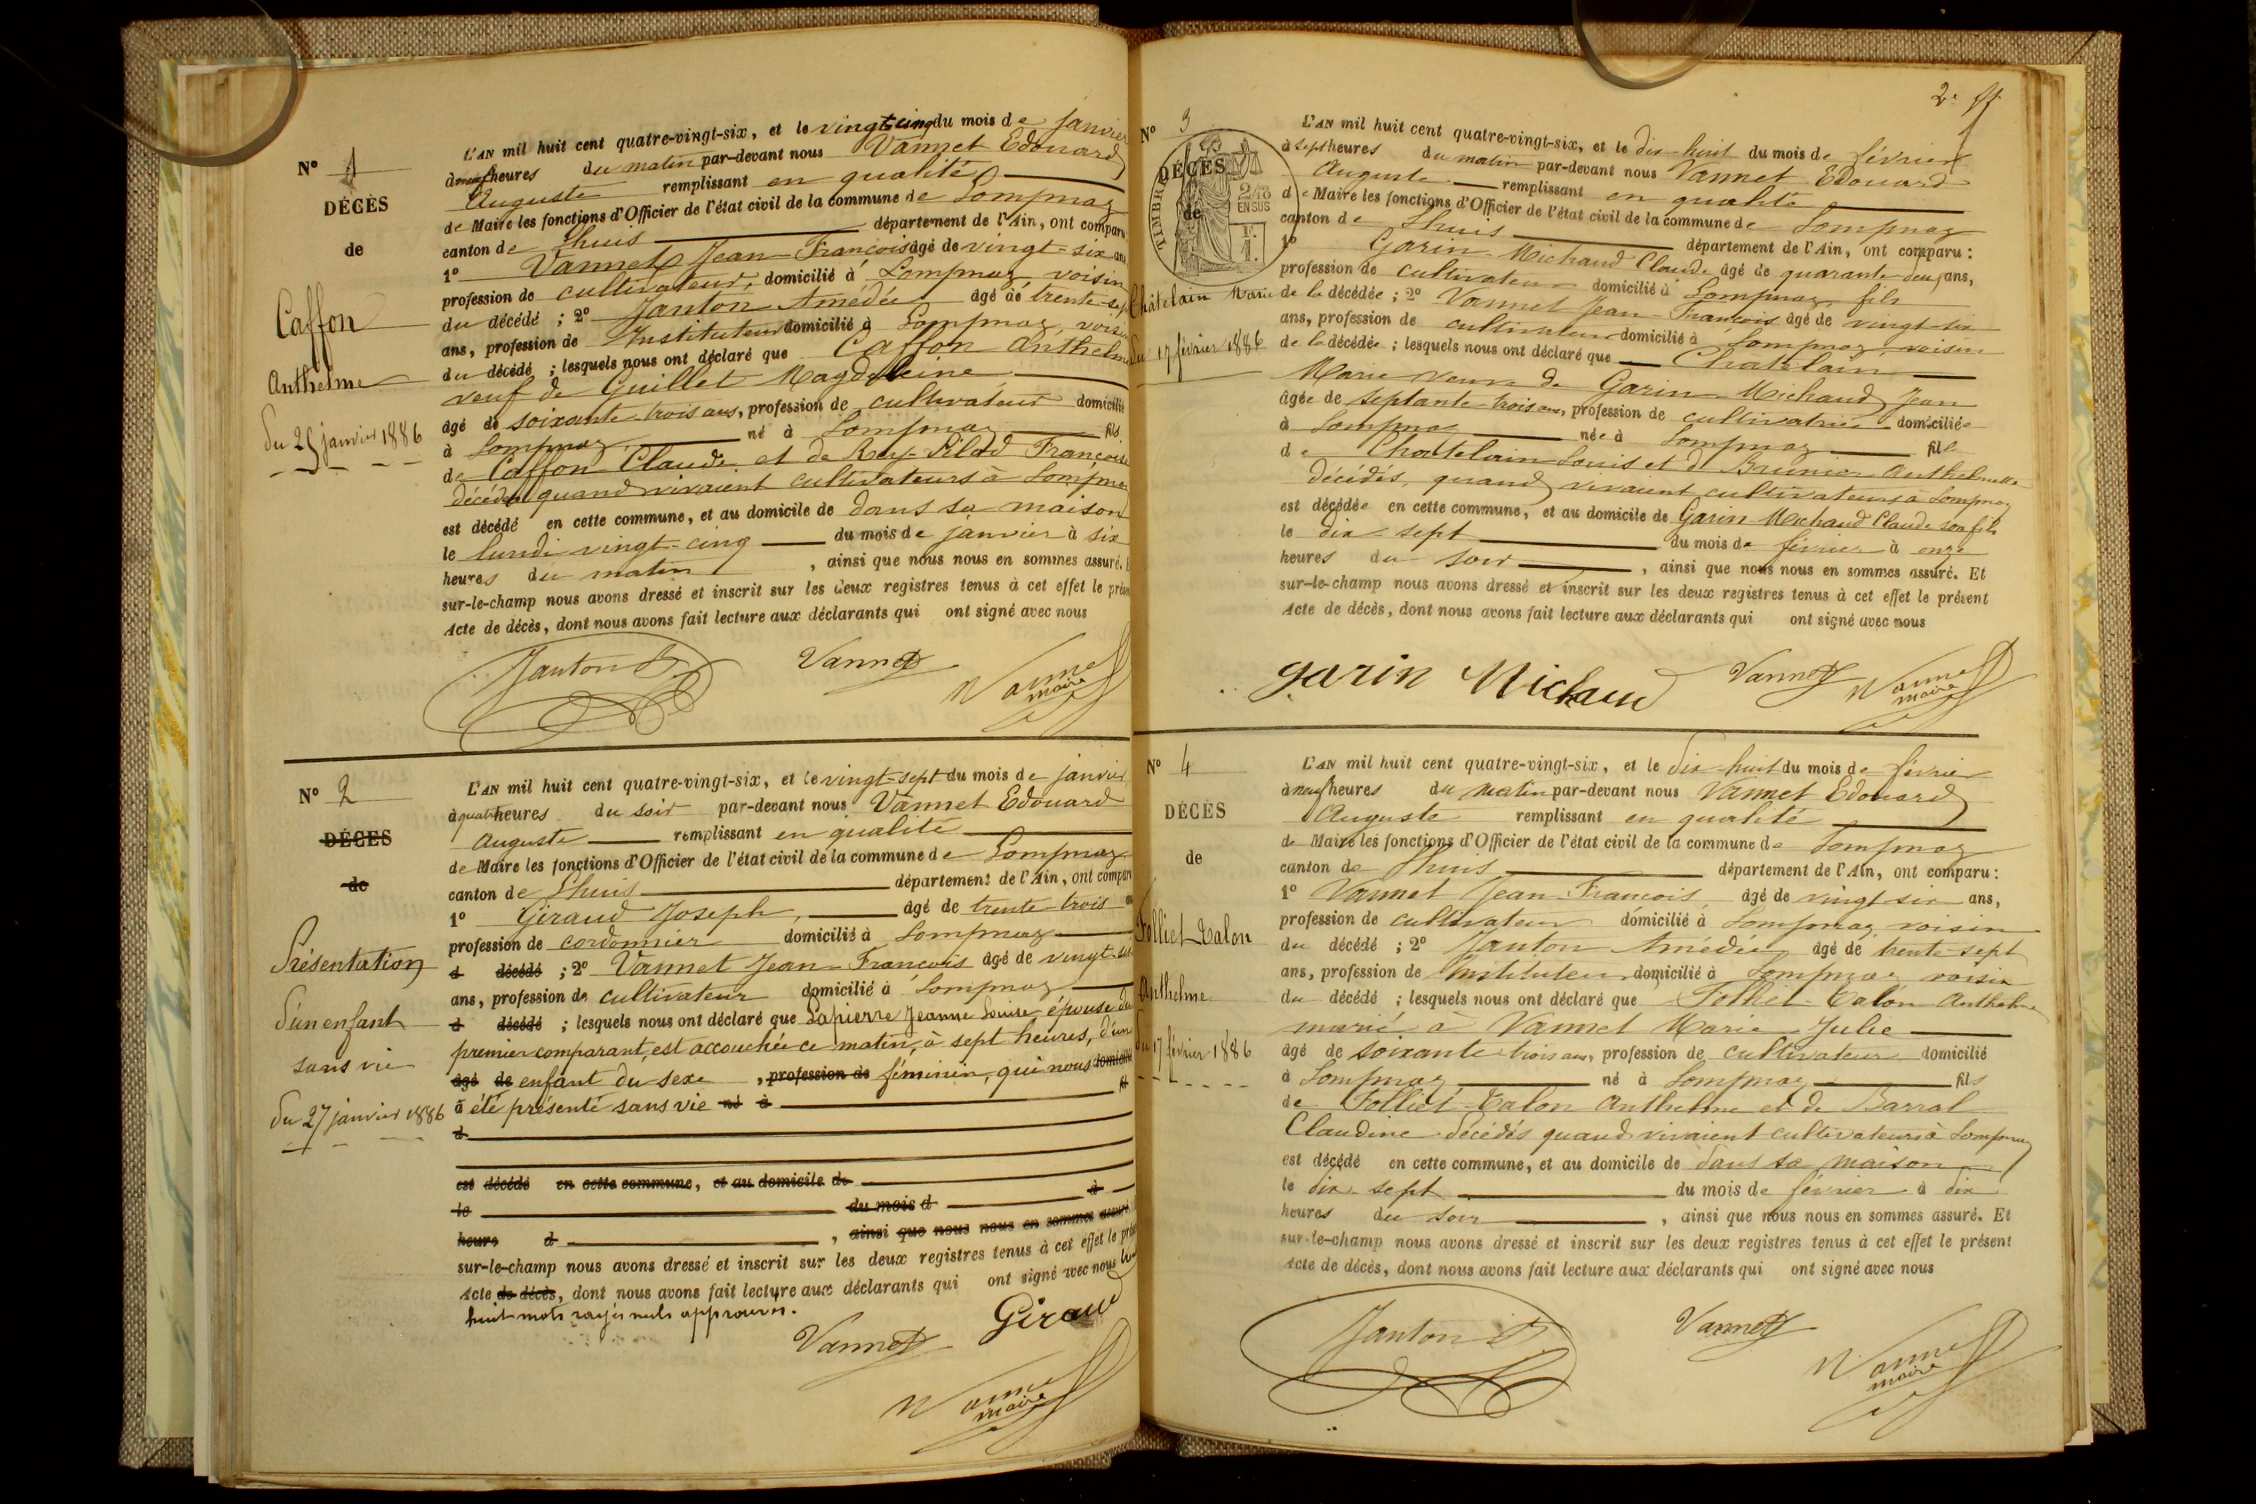 N° 1
DÉCÈS
de
Caffon
Anthelme
du 25 janvier 1886
L'AN mil huit cent quatre-vingt-six, et le vingt-cinq du mois de janvier
à neuf heures du matin par-devant nous Vannet Edouard
Auguste remplissant en qualité
de Maire les fonctions d'Officier de l'état civil de la commune de Lompnaz
canton de Lhuis département de l'Ain, ont comparu
1° Vannet Jean-François âgé de vingt-six ans
profession de cultivateur, domicilié à Lompnaz voisin
du décédé ; 2° Janton Amédée âgé de trente-sept
ans, profession de Instituteur domicilié à Lompnaz, voisin
du décédé ; lesquels nous ont déclaré que Caffon Anthelme
veuf de Guillet Magdeleine
âgé de soixante-trois ans, profession de cultivateur domicilié
à Lompnaz né à Lompnaz fils
de Caffon Claude et de Rey-Pilod Françoise
décédés quand vivaient cultivateurs à Lompnaz
est décédé en cette commune, et au domicile de dans sa maison
le lundi vingt-cinq du mois de janvier à six
heures du matin, ainsi que nous nous en sommes assuré. E
sur-le-champ nous avons dressé et inscrit sur les deux registres tenus à cet effet le prése
Acte de décès, dont nous avons fait lecture aux déclarants qui ont signé avec nous
Janton A. Vannet Vannet
maire
N° 2
DÉCÈS
de
Présentation
d'un enfant
sans vie
du 27 janvier 1886
L'AN mil huit cent quatre-vingt-six, et le vingt-sept du mois de janvier
à quatre heures du soir par-devant nous Vannet Edouard
Auguste remplissant en qualité
de Maire les fonctions d'Officier de l'état civil de la commune de Lompnaz
canton de Lhuis département de l'Ain, ont comparu
1° Giraud Joseph, âgé de trente-trois
profession de cordonnier domicilié à Lompnaz
d décédé ; 2° Vannet Jean-François âgé de vingt-six
ans, profession de cultivateur domicilié à Lompnaz
d décédé ; lesquels nous ont déclaré que Lapierre Jeanne Louise épouse du
premier comparant est accouchée ce matin, à sept heures, d'un
âgé de enfant du sexe, profession de féminin, qui nous domicilié
à été présenté sans vie né à fil
d
est décédé en cette commune, et au domicile de
le du mois d à
heure d, ainsi que nous nous en sommes assuré
sur-le-champ nous avons dressé et inscrit sur les deux registres tenus à cet effet le prése
Acte de décès, dont nous avons fait lecture aux déclarants qui ont signé avec nous
huit mots rayés nuls approuvés.
Vannet Giraud
Vannet
maire
2e
N° 3
DÉCÈS
de
TIMBRE
2/10
EN SUS
Châtelain Marie
du 17 février 1886
L'AN mil huit cent quatre-vingt-six, et le dix-huit du mois de février
à sept heures du matin par-devant nous Vannet Edouard
Auguste remplissant en qualité
de Maire les fonctions d'Officier de l'état civil de la commune de Lompnaz
canton de Lhuis département de l'Ain, ont comparu :
1° Garin-Michaud Claude âgé de quarante-deux ans,
profession de cultivateur domicilié à Lompnaz, fils
de la décédée ; 2° Vannet Jean-François âgé de vingt-six
ans, profession de cultivateur domicilié à Lompnaz, voisin
de la décédée ; lesquels nous ont déclaré que Châtelain
Marie veuve de Garin-Michaud Jean
âgée de septante-trois ans, profession de cultivatrice domiciliée
à Lompnaz née à Lompnaz fille
de Châtelain Louis et de Brunier Anthelmette
décédés, quand vivaient cultivateurs à Lompnaz
est décédée en cette commune, et au domicile de Garin-Michaud Claude son fils
le dix-sept du mois de février à onze
heures du soir, ainsi que nous nous en sommes assuré. Et
sur-le-champ nous avons dressé et inscrit sur les deux registres tenus à cet effet le présent
Acte de décès, dont nous avons fait lecture aux déclarants qui ont signé avec nous
garin Michaud Vannet Vannet
maire
N° 4
DÉCÈS
de
Folliet-Talon
Anthelme
du 17 février 1886
L'AN mil huit cent quatre-vingt-six, et le dix-huit du mois de février
à neuf heures du matin par-devant nous Vannet Edouard
Auguste remplissant en qualité
de Maire les fonctions d'Officier de l'état civil de la commune de Lompnaz
canton de Lhuis département de l'Ain, ont comparu :
1° Vannet Jean-François âgé de vingt-six ans,
profession de cultivateur domicilié à Lompnaz, voisin
du décédé ; 2° Janton Amédée âgé de trente-sept
ans, profession de Instituteur domicilié à Lompnaz, voisin
du décédé ; lesquels nous ont déclaré que Folliet-Talon Anthelme
marié à Vannet Marie Julie
âgé de soixante-trois ans, profession de cultivateur domicilié
à Lompnaz né à Lompnaz fils
de Folliet-Talon Anthelme et de Barral
Claudine décédés quand vivaient cultivateurs à Lompnaz
est décédé en cette commune, et au domicile de dans sa maison
le dix-sept du mois de février à dix
heures du soir, ainsi que nous nous en sommes assuré. Et
sur-le-champ nous avons dressé et inscrit sur les deux registres tenus à cet effet le présent
Acte de décès, dont nous avons fait lecture aux déclarants qui ont signé avec nous
Janton A. Vannet Vannet
maire